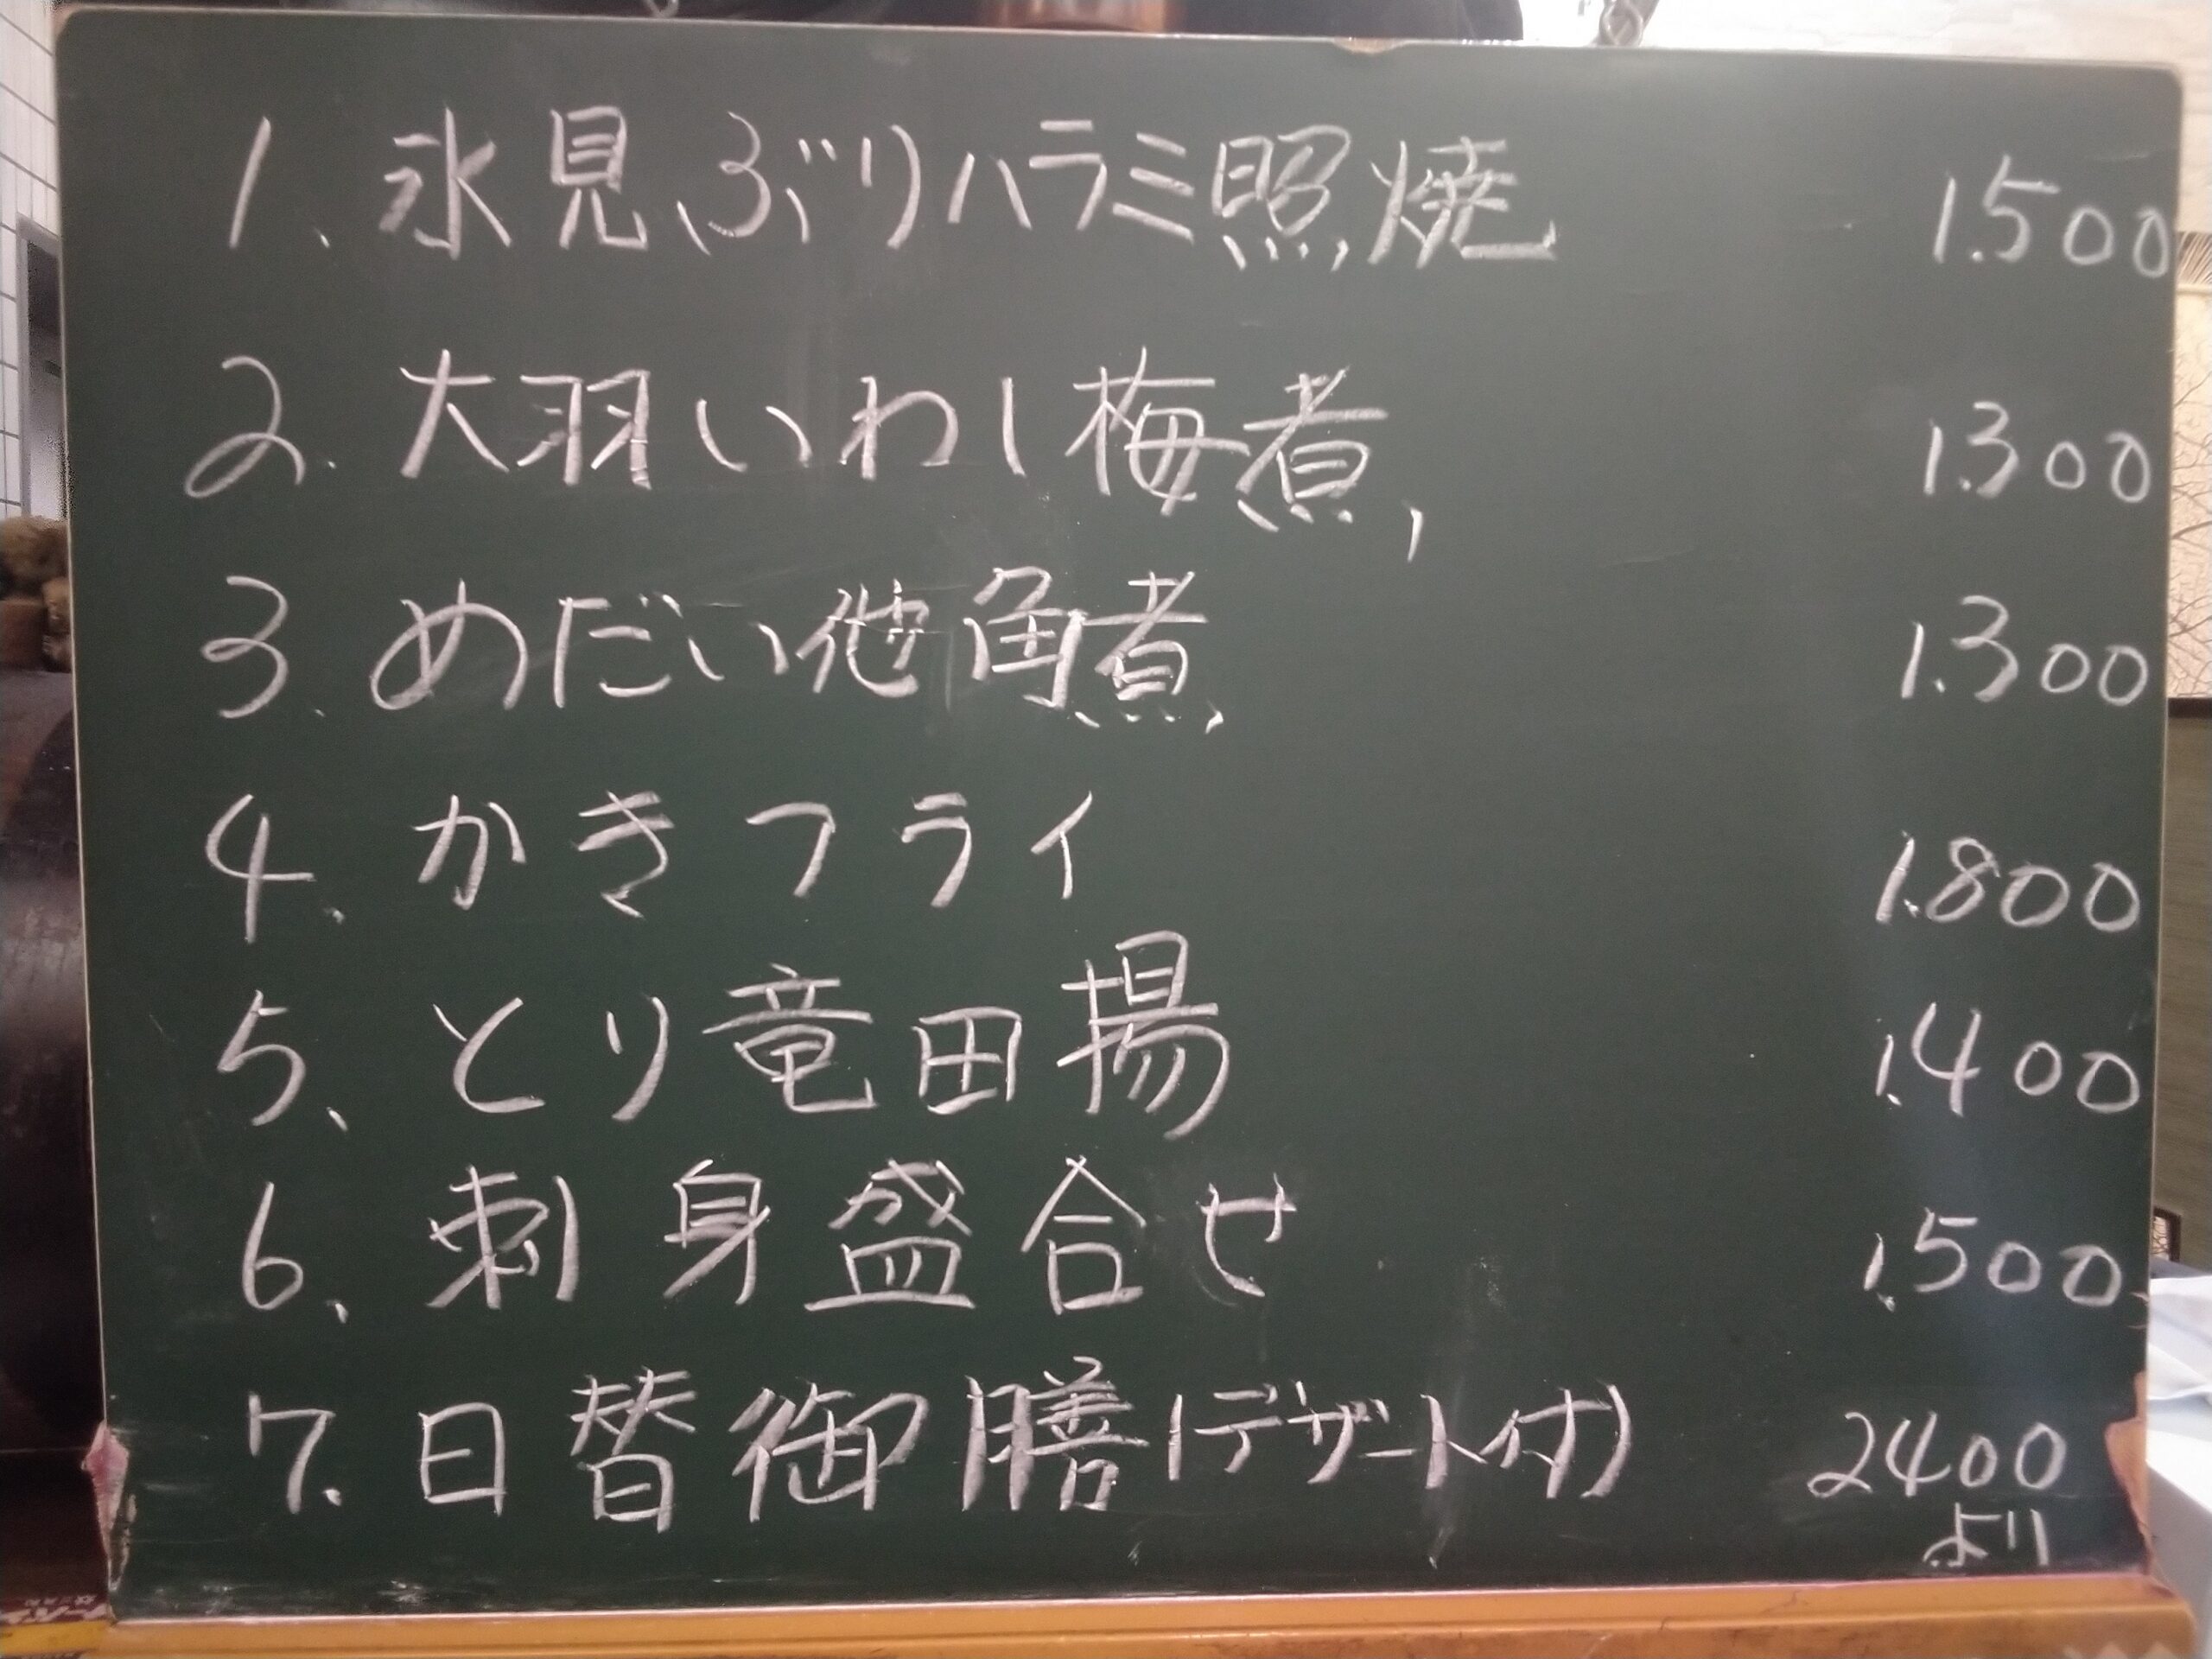 1、氷見ぶりハラミ照焼 1.500
2.大羽いわし梅煮 1.300
3.めだい他角煮 1.300
4.かきフライ 1.800
5、とり竜田揚 1.400
6、刺身盛合せ 1.500
7.日替御膳(デザート付) 2400
より